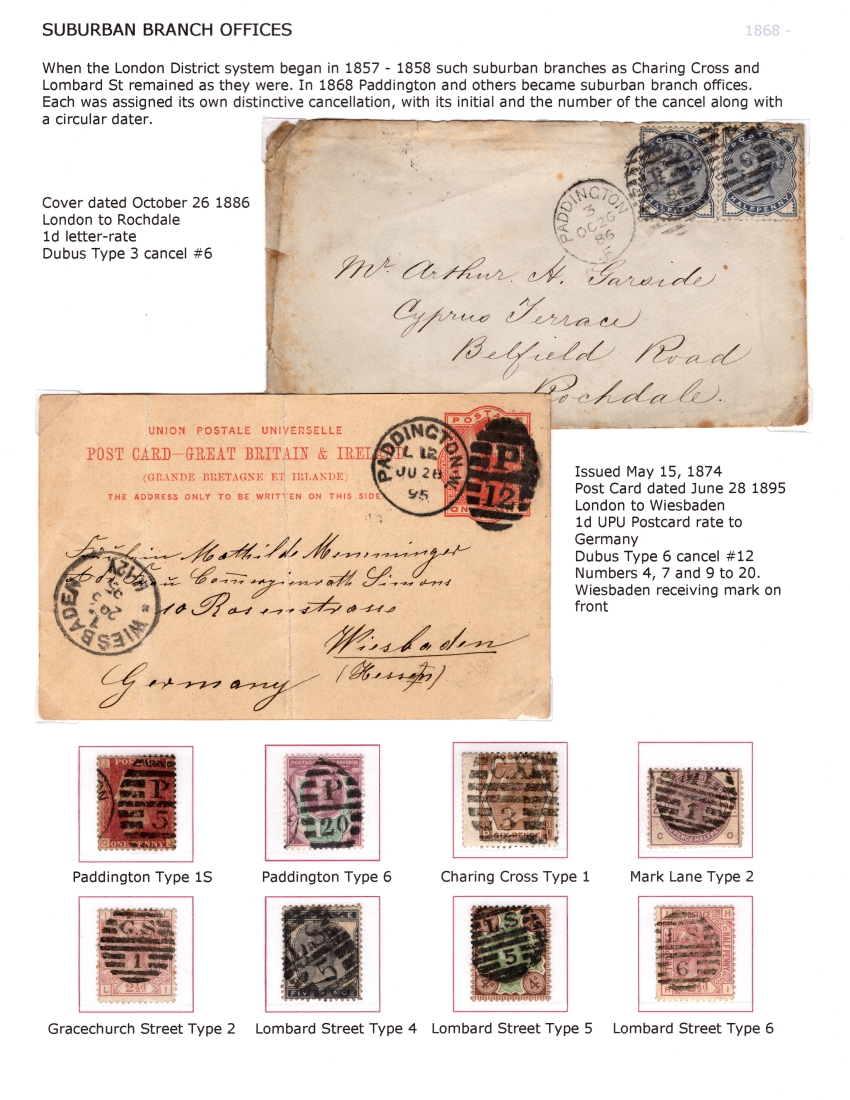 SUBURBAN BRANCH OFFICES
1868 -
When the London District system began in 1857 - 1858 such suburban branches as Charing Cross and
Lombard St remained as they were. In 1868 Paddington and others became suburban branch offices.
Each was assigned its own distinctive cancellation, with its initial and the number of the cancel along with
a circular dater.
Cover dated October 26 1886
London to Rochdale
1d letter-rate
Dubus Type 3 cancel #6
PADDINGTON
3
OC 26
86
POSTAGE
HALFPENNY
Mr. Arthur. H. Garside
Cyprus Terrace
Belfield Road
Rochdale.
UNION POSTALE UNIVERSELLE
POST CARD—GREAT BRITAIN & IRELAND
(GRANDE BRETAGNE ET IRLANDE)
THE ADDRESS ONLY TO BE WRITTEN ON THIS SIDE
PADDINGTON.W.
L 12
JU 28
95
P
12
Fräulein Mathilde Memminger
Adr. Frau Commerzienrath Simons
10 Rosenstrasse
Wiesbaden
(Hessen)
Germany
WIESBADEN
Issued May 15, 1874
Post Card dated June 28 1895
London to Wiesbaden
1d UPU Postcard rate to
Germany
Dubus Type 6 cancel #12
Numbers 4, 7 and 9 to 20.
Wiesbaden receiving mark on
front
P
5
ONE PENNY
P
20
C.X
3
SIX PENCE
M.L
1
C O
Paddington Type 1S
Paddington Type 6
Charing Cross Type 1
Mark Lane Type 2
G.S
1
2½d
L I
L.S
5
L.S
5
4
L S
6
H
I
Gracechurch Street Type 2
Lombard Street Type 4
Lombard Street Type 5
Lombard Street Type 6